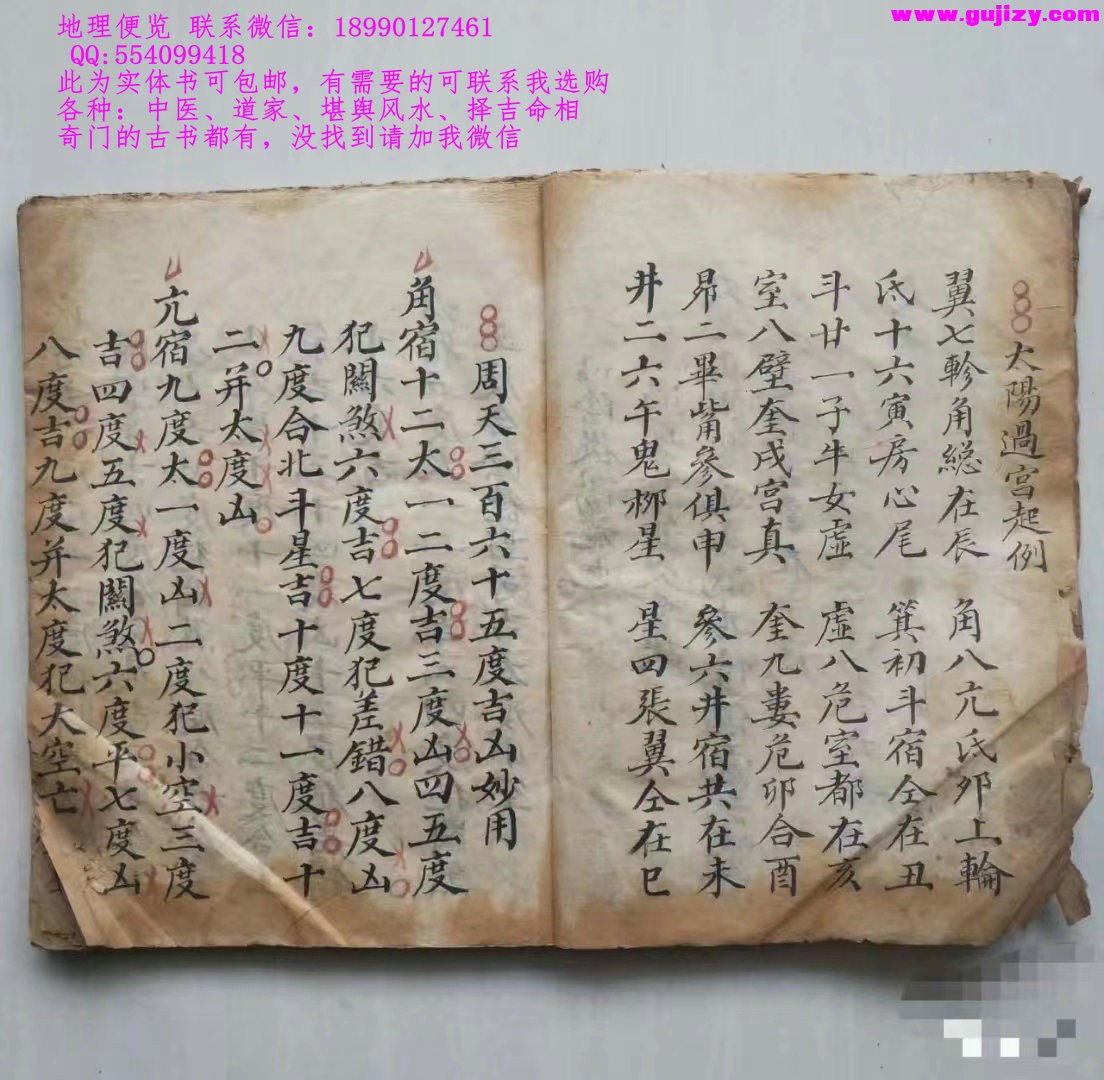 www.gujizy.com
地理便览 联系微信：18990127461
QQ:554099418
此为实体书可包邮，有需要的可联系我选购
各种：中医、道家、堪舆风水、择吉命相
奇门的古书都有，没找到请加我微信
太陽過宮起例
翼七軫角總在辰 角八亢氐卯上輪
氐十六寅房心尾 箕初斗宿仝在丑
斗廿一子牛女虛 虛八危室都在亥
室八壁奎戌宮真 奎九婁危卯合酉
昴二畢觜參俱申 參六井宿共在未
井二六午鬼柳星 星四張翼仝在巳
周天三百六十五度吉凶妙用
角宿十二太一二度吉三度凶四五度
犯關煞六度吉七度犯差錯八度凶
九度合北斗星吉十度十一度吉十
二并太度凶
亢宿九度太一度凶二度犯小空三度
吉四度五度犯關煞六度平七度凶
八度吉九度并太度犯大空亡